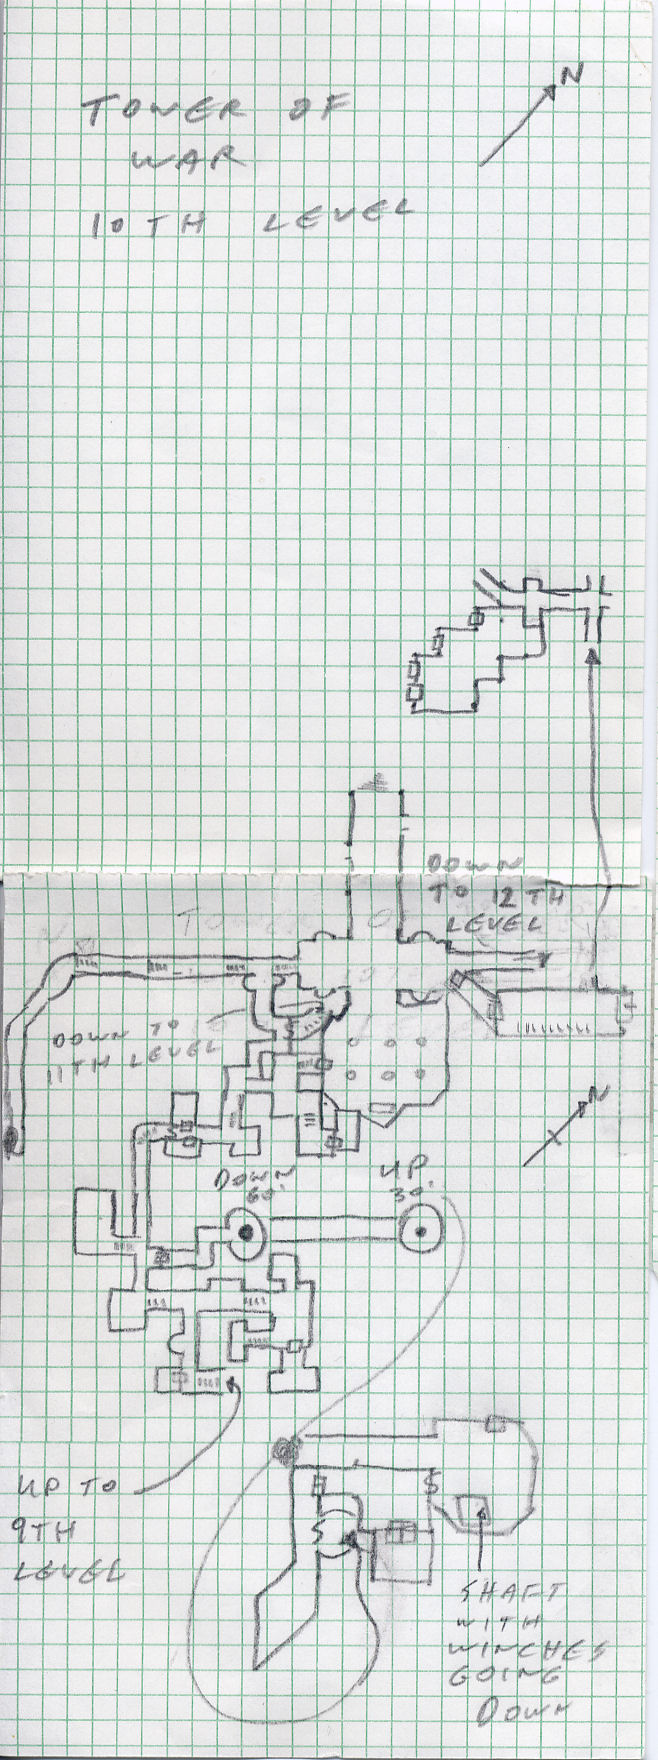 N
TOWER OF
WAR
10TH LEVEL
DOWN
TO 12TH
LEVEL
DOWN TO
11TH LEVEL
N
DOWN
60'
UP
30'
S
S
UP TO
9TH
LEVEL
SHAFT
WITH
WINCHES
GOING
DOWN